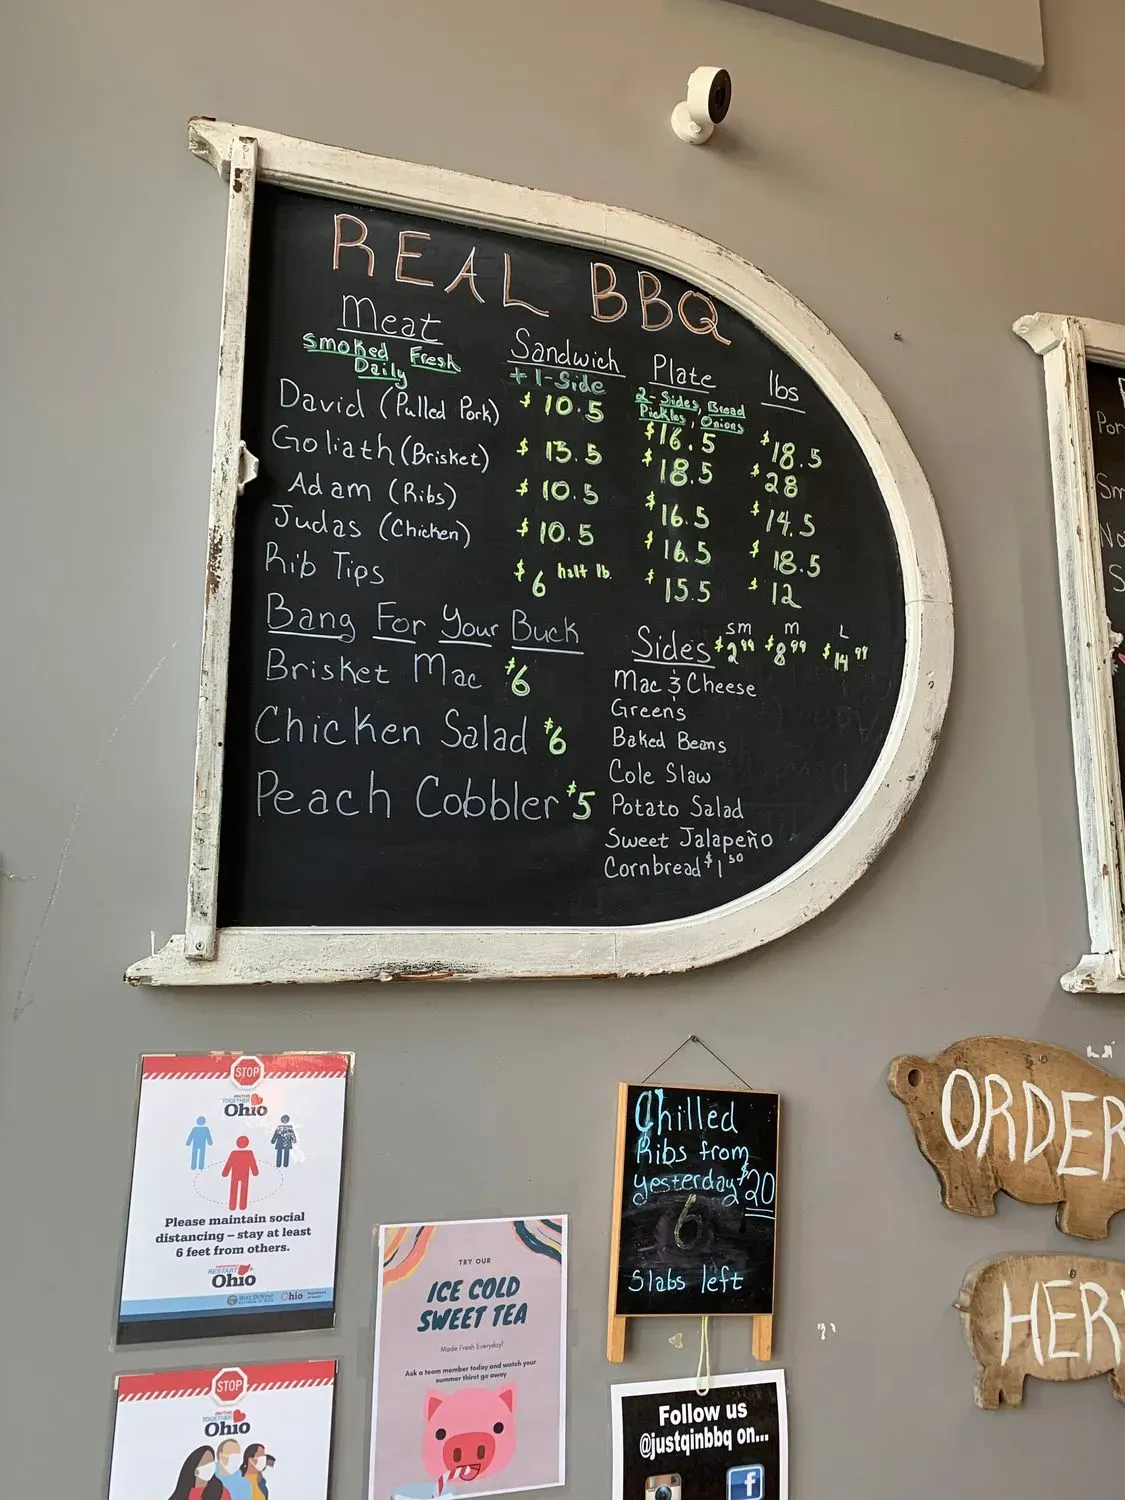 REAL BBQ
Meat
Smoked Fresh
Daily
Sandwich
+ 1-Side
Plate
2-Sides, Bread
Pickles, Onions
lbs
David (Pulled Pork) $10.5 $16.5 $18.5
Goliath (Brisket) $13.5 $18.5 $28
Adam (Ribs) $10.5 $16.5 $14.5
Judas (Chicken) $10.5 $16.5 $18.5
Rib Tips $6 half lb. $15.5 $12
Bang For Your Buck
Brisket Mac $6
Chicken Salad $6
Peach Cobbler $5
SM M L
Sides $2.99 $8.99 $14.99
Mac & Cheese
Greens
Baked Beans
Cole Slaw
Potato Salad
Sweet Jalapeño
Cornbread $1.50
Por
Sm
No
S
STOP
TOGETHER
Ohio
Please maintain social
distancing – stay at least
6 feet from others.
RESTART
Ohio
Ohio
STOP
TOGETHER
Ohio
TRY OUR
ICE COLD
SWEET TEA
Made Fresh Everyday!
Ask a team member today and watch your
summer thirst go away
Chilled
Ribs from
yesterday $20
6
Slabs left
Follow us
@justqinbbq on...
f
ORDER
HER